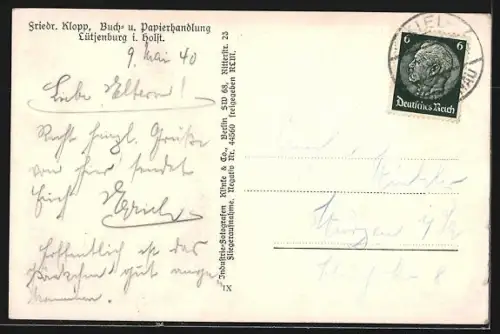 Friedr. Klopp, Buch- u. Papierhandlung
Lütjenburg i. Holst.
9. Mai 40
Liebe Eltern!
Recht herzl. Grüße
von hier sendet
Euch Erich
Hoffentlich ist das
Päckchen gut ange
kommen.
Industrie-Fotografen Klinke & Co., Berlin SW 68, Ritterstr. 23
Fliegeraufnahme. Negativ Nr. 44560 freigegeben RLM.
IX
KIEL
6 6
Deutsches Reich